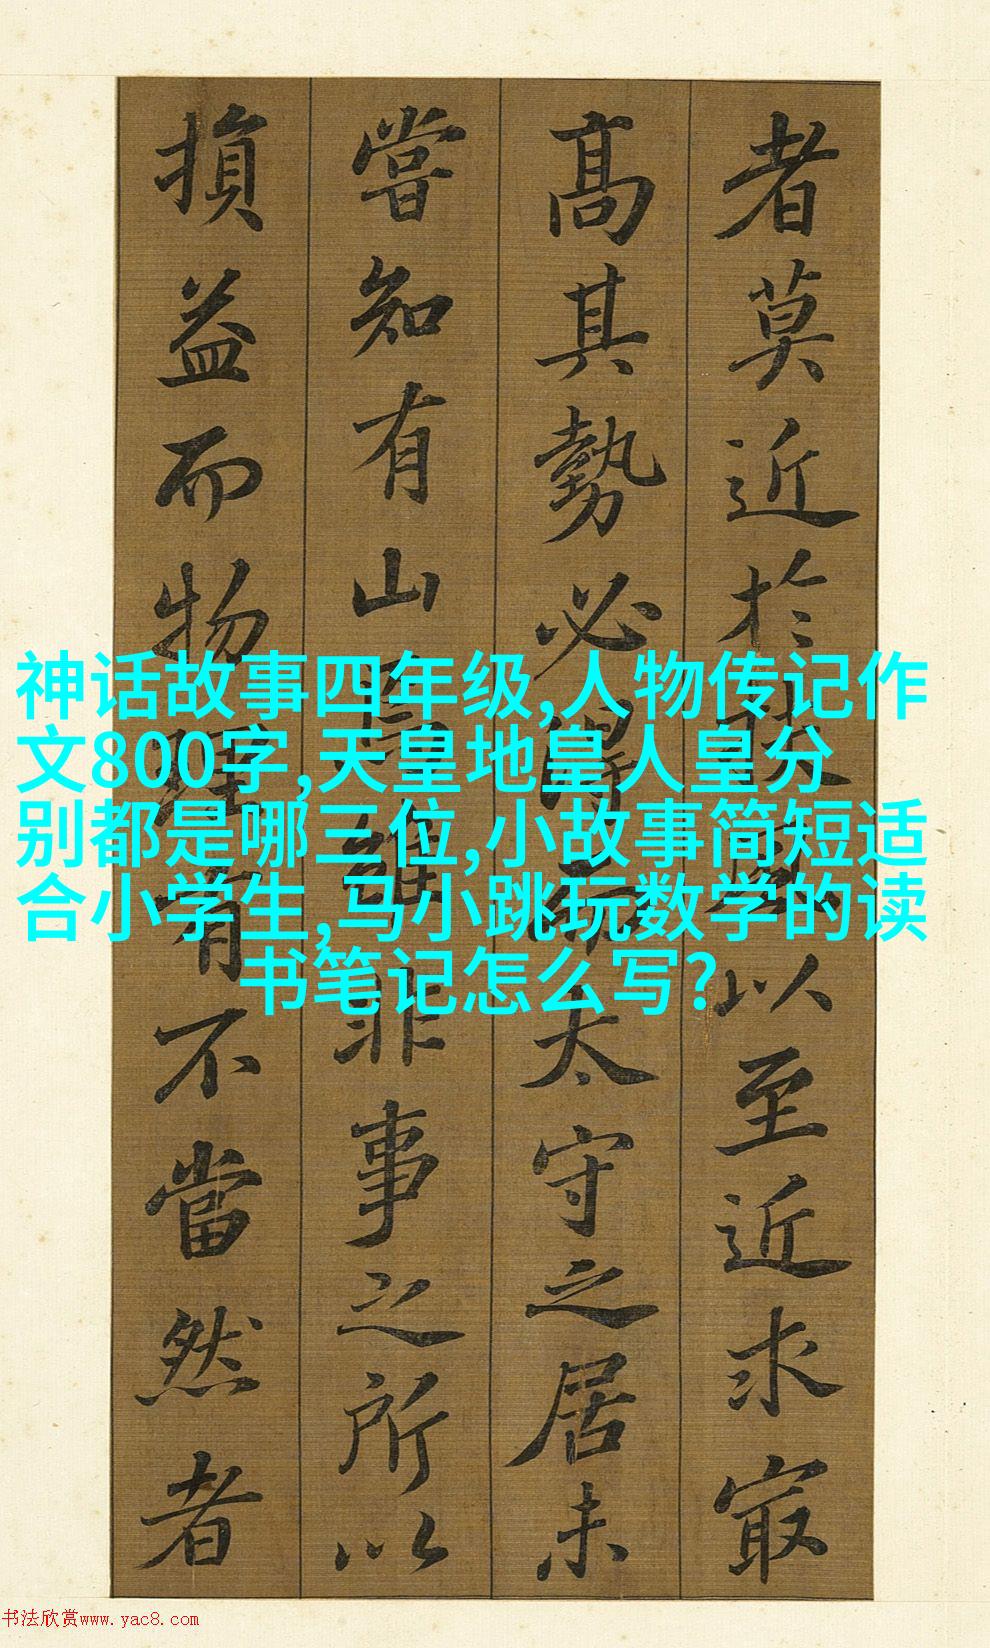 者莫近於扶風以至近求冣
高其勢必得而太守之居未
嘗知有山焉雖非事之所以
損益而物理有不當然者
神话故事四年级,人物传记作
文800字,天皇地皇人皇分
别都是哪三位,小故事简短适
合小学生,马小跳玩数学的读
书笔记怎么写?
书法欣赏www.yac8.com